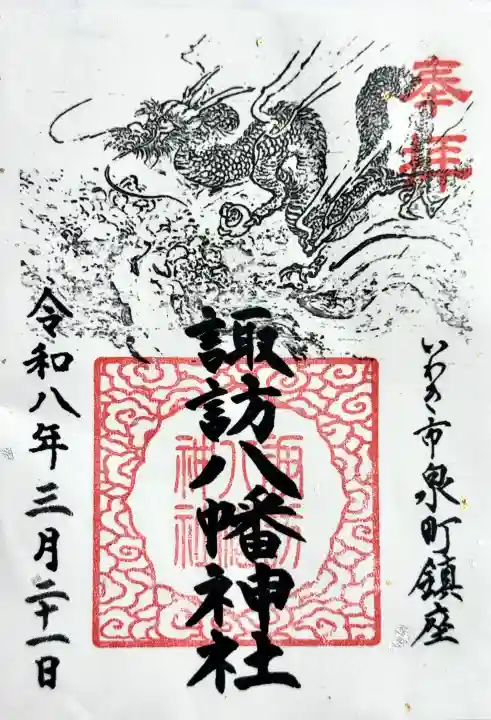 奉拝
いわき市泉町鎮座
諏訪八幡神社
諏訪
八幡
神社
令和八年三月二十一日